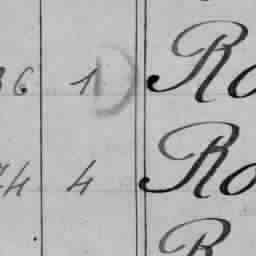 36 1 Ro
74 4 Ro
R